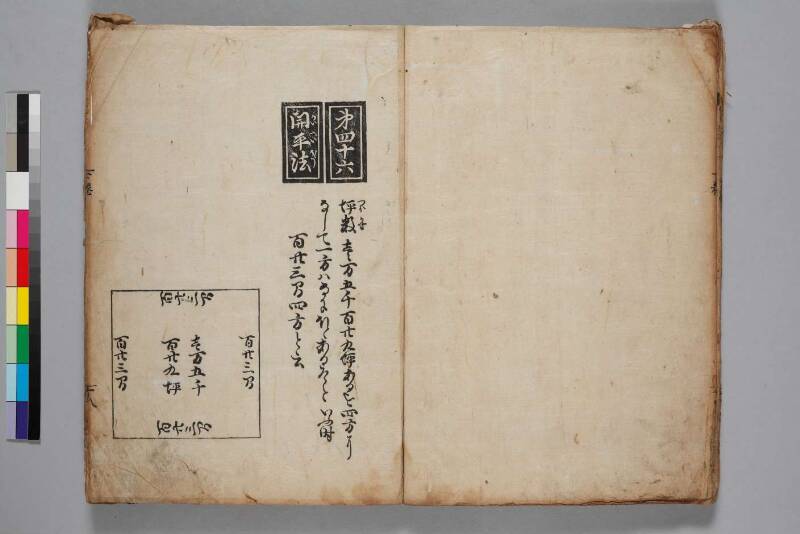 第四十六
開平法
坪数壱万五千百廿九坪あるを四方に
なして一方ハなにほどあるぞといふ時
百廿三間四方と云
百廿三間
百廿三間
壱万五千
百廿九坪
百廿三間
百廿三間